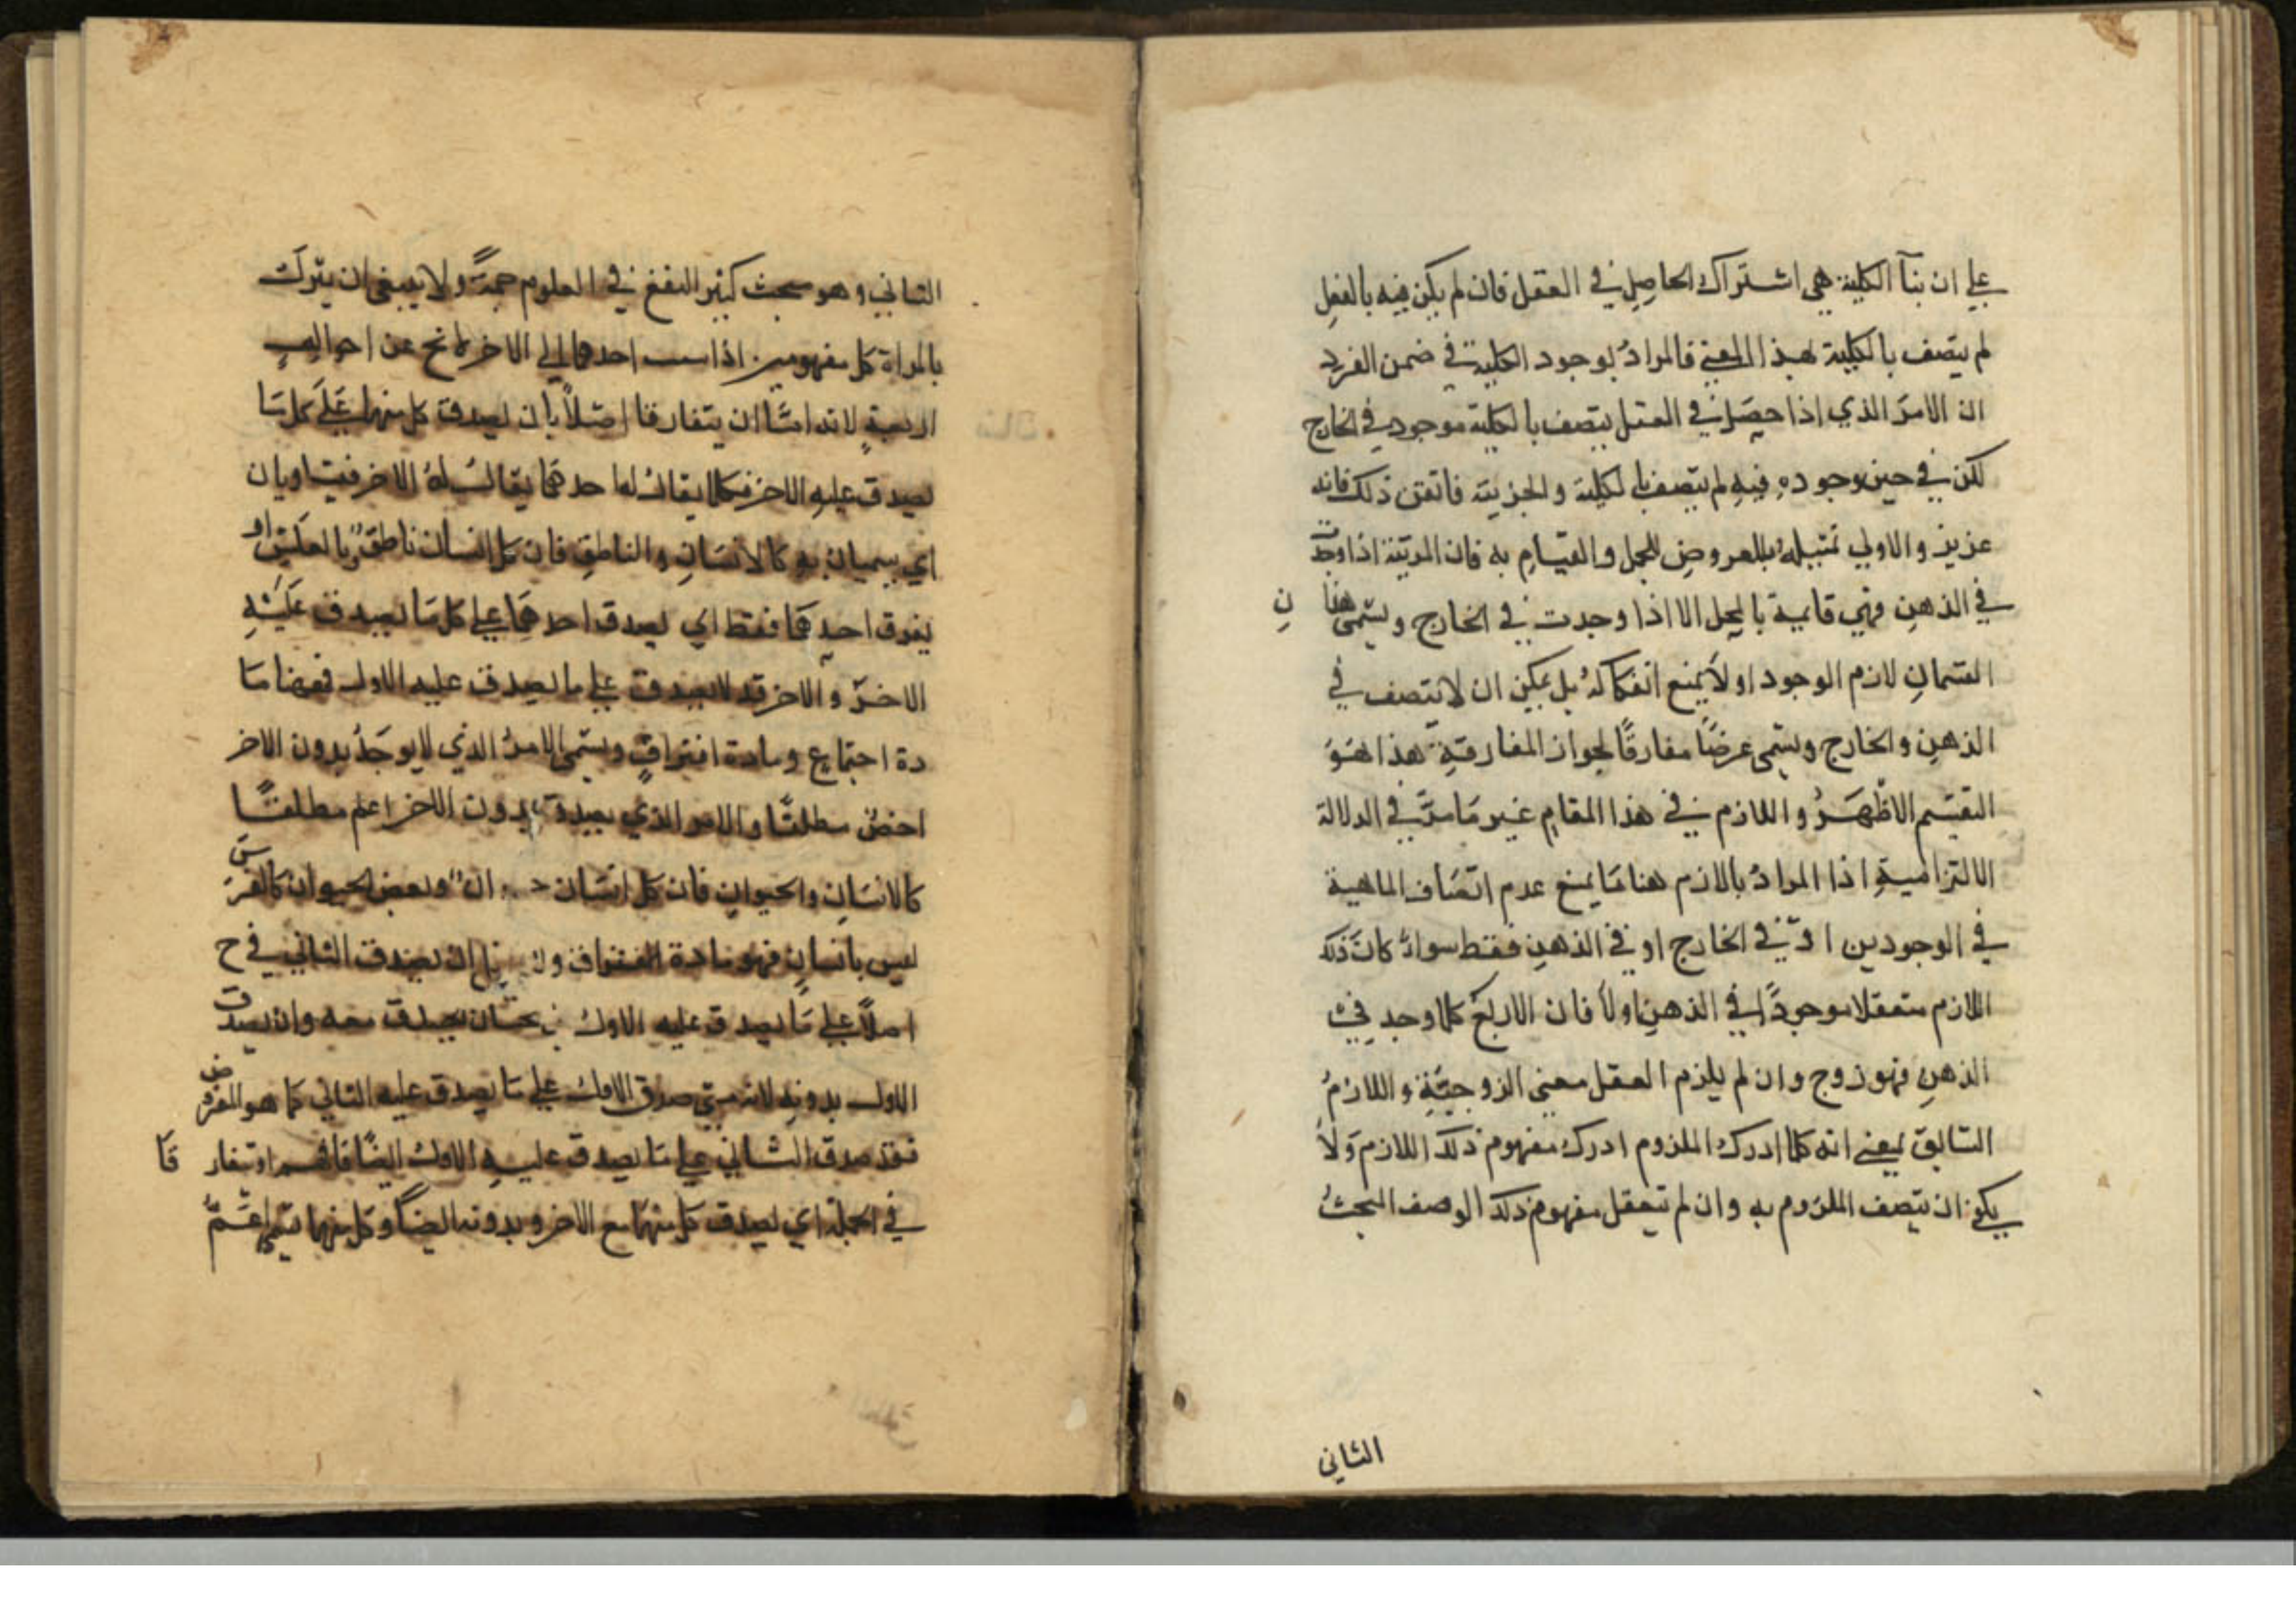 علي ان بنآ الكلية هي اشتراك الحاصل في العقل فان لم يكن فيه بالفعل
لم يتصف بالكلية بهذا المعني فالمراد بوجود الكلية في ضمن الفرد
ان الامر الذي اذا حصل في العقل يتصف بالكلية موجود في الخارج
لكن في حين وجوده فيه لم يتصف بالكلية والجزيية فاتقن ذلك فانه
عزيز والاولي تمثيله بالعروض للمحل والقيام به فان المرتبة اذا وجدت
في الذهن فهي قايمة بالمحل الا اذا وجدت في الخارج ويسمي هذان
القسمان لازم الوجود اولا يمنع انفكاكه بل يمكن ان لا يتصف في
الذهن والخارج ويسمي عرضًا مفارقًا لجواز المفارقة هذا هو
التقسيم الاظهر واللازم في هذا المقام غير ما مر في الدلالة
الالتزامية اذا المراد بالازم هنا ما يمنع عدم اتصاف الماهية
في الوجودين او في الخارج او في الذهن فقط سواء كان ذلك
اللازم متعقلا موجودًا في الذهن اولا فان الاربع كلما وجد في
الذهن فهو زوج وان لم يلزم العقل معني الزوجية واللازم
السابق بمعني انه كلما ادرك الملزوم ادرك مفهوم ذلك اللازم ولا
يكون ان يتصف الملزوم به وان لم تعقل مفهوم ذلك الوصف البحث
الثاني
الثاني وهو مبحث كثير النفع في العلوم جمةً ولا ينبغي ان يترك
بالمراة كل مفهومين اذا نسب احدهما الي الاخر لا تخ عن احوال
اربعة لانه اما ان يتفارقا اصلاً بان يصدق كل منهما علي كل ما
يصدق عليه الاخر فكلما يقال له احدهما يقال له الاخر فيتساويان
اي يسميان به كالانسان والناطق فان كل انسان ناطق وبالعكس او
يفرق احدهما فقط اي يصدق احدهما علي كل ما يصدق عليه
الاخر والاخر قد لا يصدق علي ما يصدق عليه الاول فههنا ما
دة اجتماع ومادة افتراق ويسمي الامر الذي لا يوجد بدون الاخر
اخص مطلقًا والامر الذي يصدق بدون الاخر اعم مطلقًا
كالانسان والحيوان فان كل انسان حيوان وبعض الحيوان كالفرس
ليس بانسان فهو مادة الافتراق ولا ان يصدق الثاني في ح
اصلاً علي ما يصدق عليه الاول يصدق معه وان يصدق
الاول بدونه لانه متي صدق الاول علي ما يصدق عليه الثاني كما هو المفروض
فقد صدق الثاني علي ما يصدق عليه الاول ايضًا فافهم او تفارقا
في الجملة اي يصدق كل منهما مع الاخر وبدونه ايضًا وكل منهما يسمي اعم